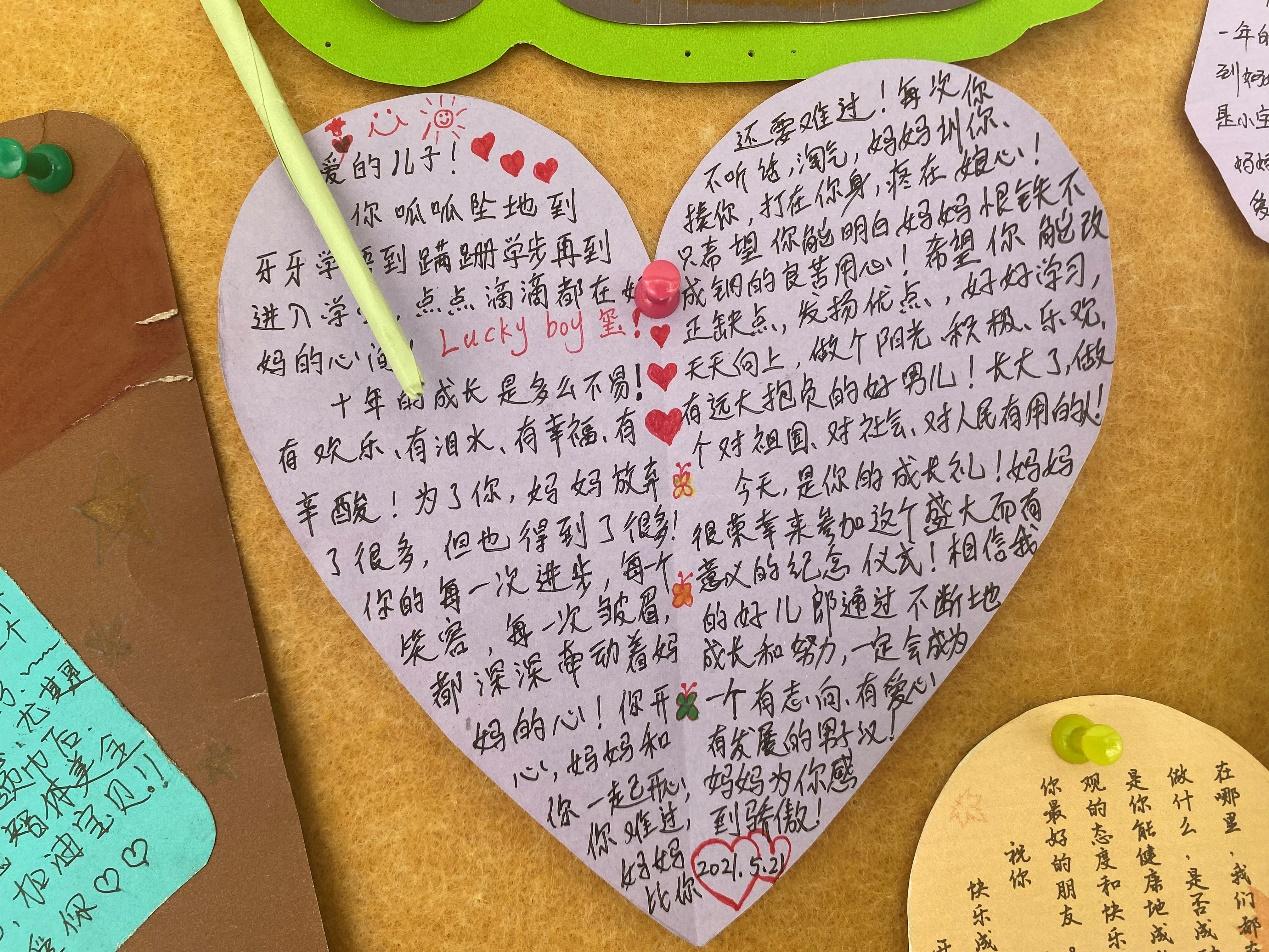 爱的儿子！
你呱呱坠地到
牙牙学语到蹒跚学步再到
进入学，点点滴滴都在妈
妈的心间！
Lucky boy 玺！
十年的成长是多么不易！
有欢乐、有泪水、有幸福、有
辛酸！为了你，妈妈放弃
了很多，但也得到了很多！
你的每一次进步，每一个
笑容，每一次皱眉，
都深深牵动着妈
妈的心！你开
心，妈妈和
你一起开心，
你难过，
妈妈
比你
还要难过！每次你
不听话，淘气，妈妈训你、
揍你，打在你身，疼在娘心！
只希望你能明白妈妈恨铁不
成钢的良苦用心！希望你能改
正缺点，发扬优点，好好学习，
天天向上，做个阳光、积极、乐观、
有远大抱负的好男儿！长大了，做
个对祖国、对社会、对人民有用的人！
今天，是你的成长礼！妈妈
很荣幸来参加这个盛大而有
意义的纪念仪式！相信我
的好儿郎通过不断地
成长和努力，一定会成为
一个有志向、有爱心
有发展的男子汉！
妈妈为你感
到骄傲！
2021.5.21
一年的
到妈
是小宝
妈妈
个
尤其是
领巾后
体美全
加油宝贝!!
你
在哪里，我们都
做什么，是否成
是你能健康地成
观的态度和快乐
你最好的朋友
祝你
快乐成